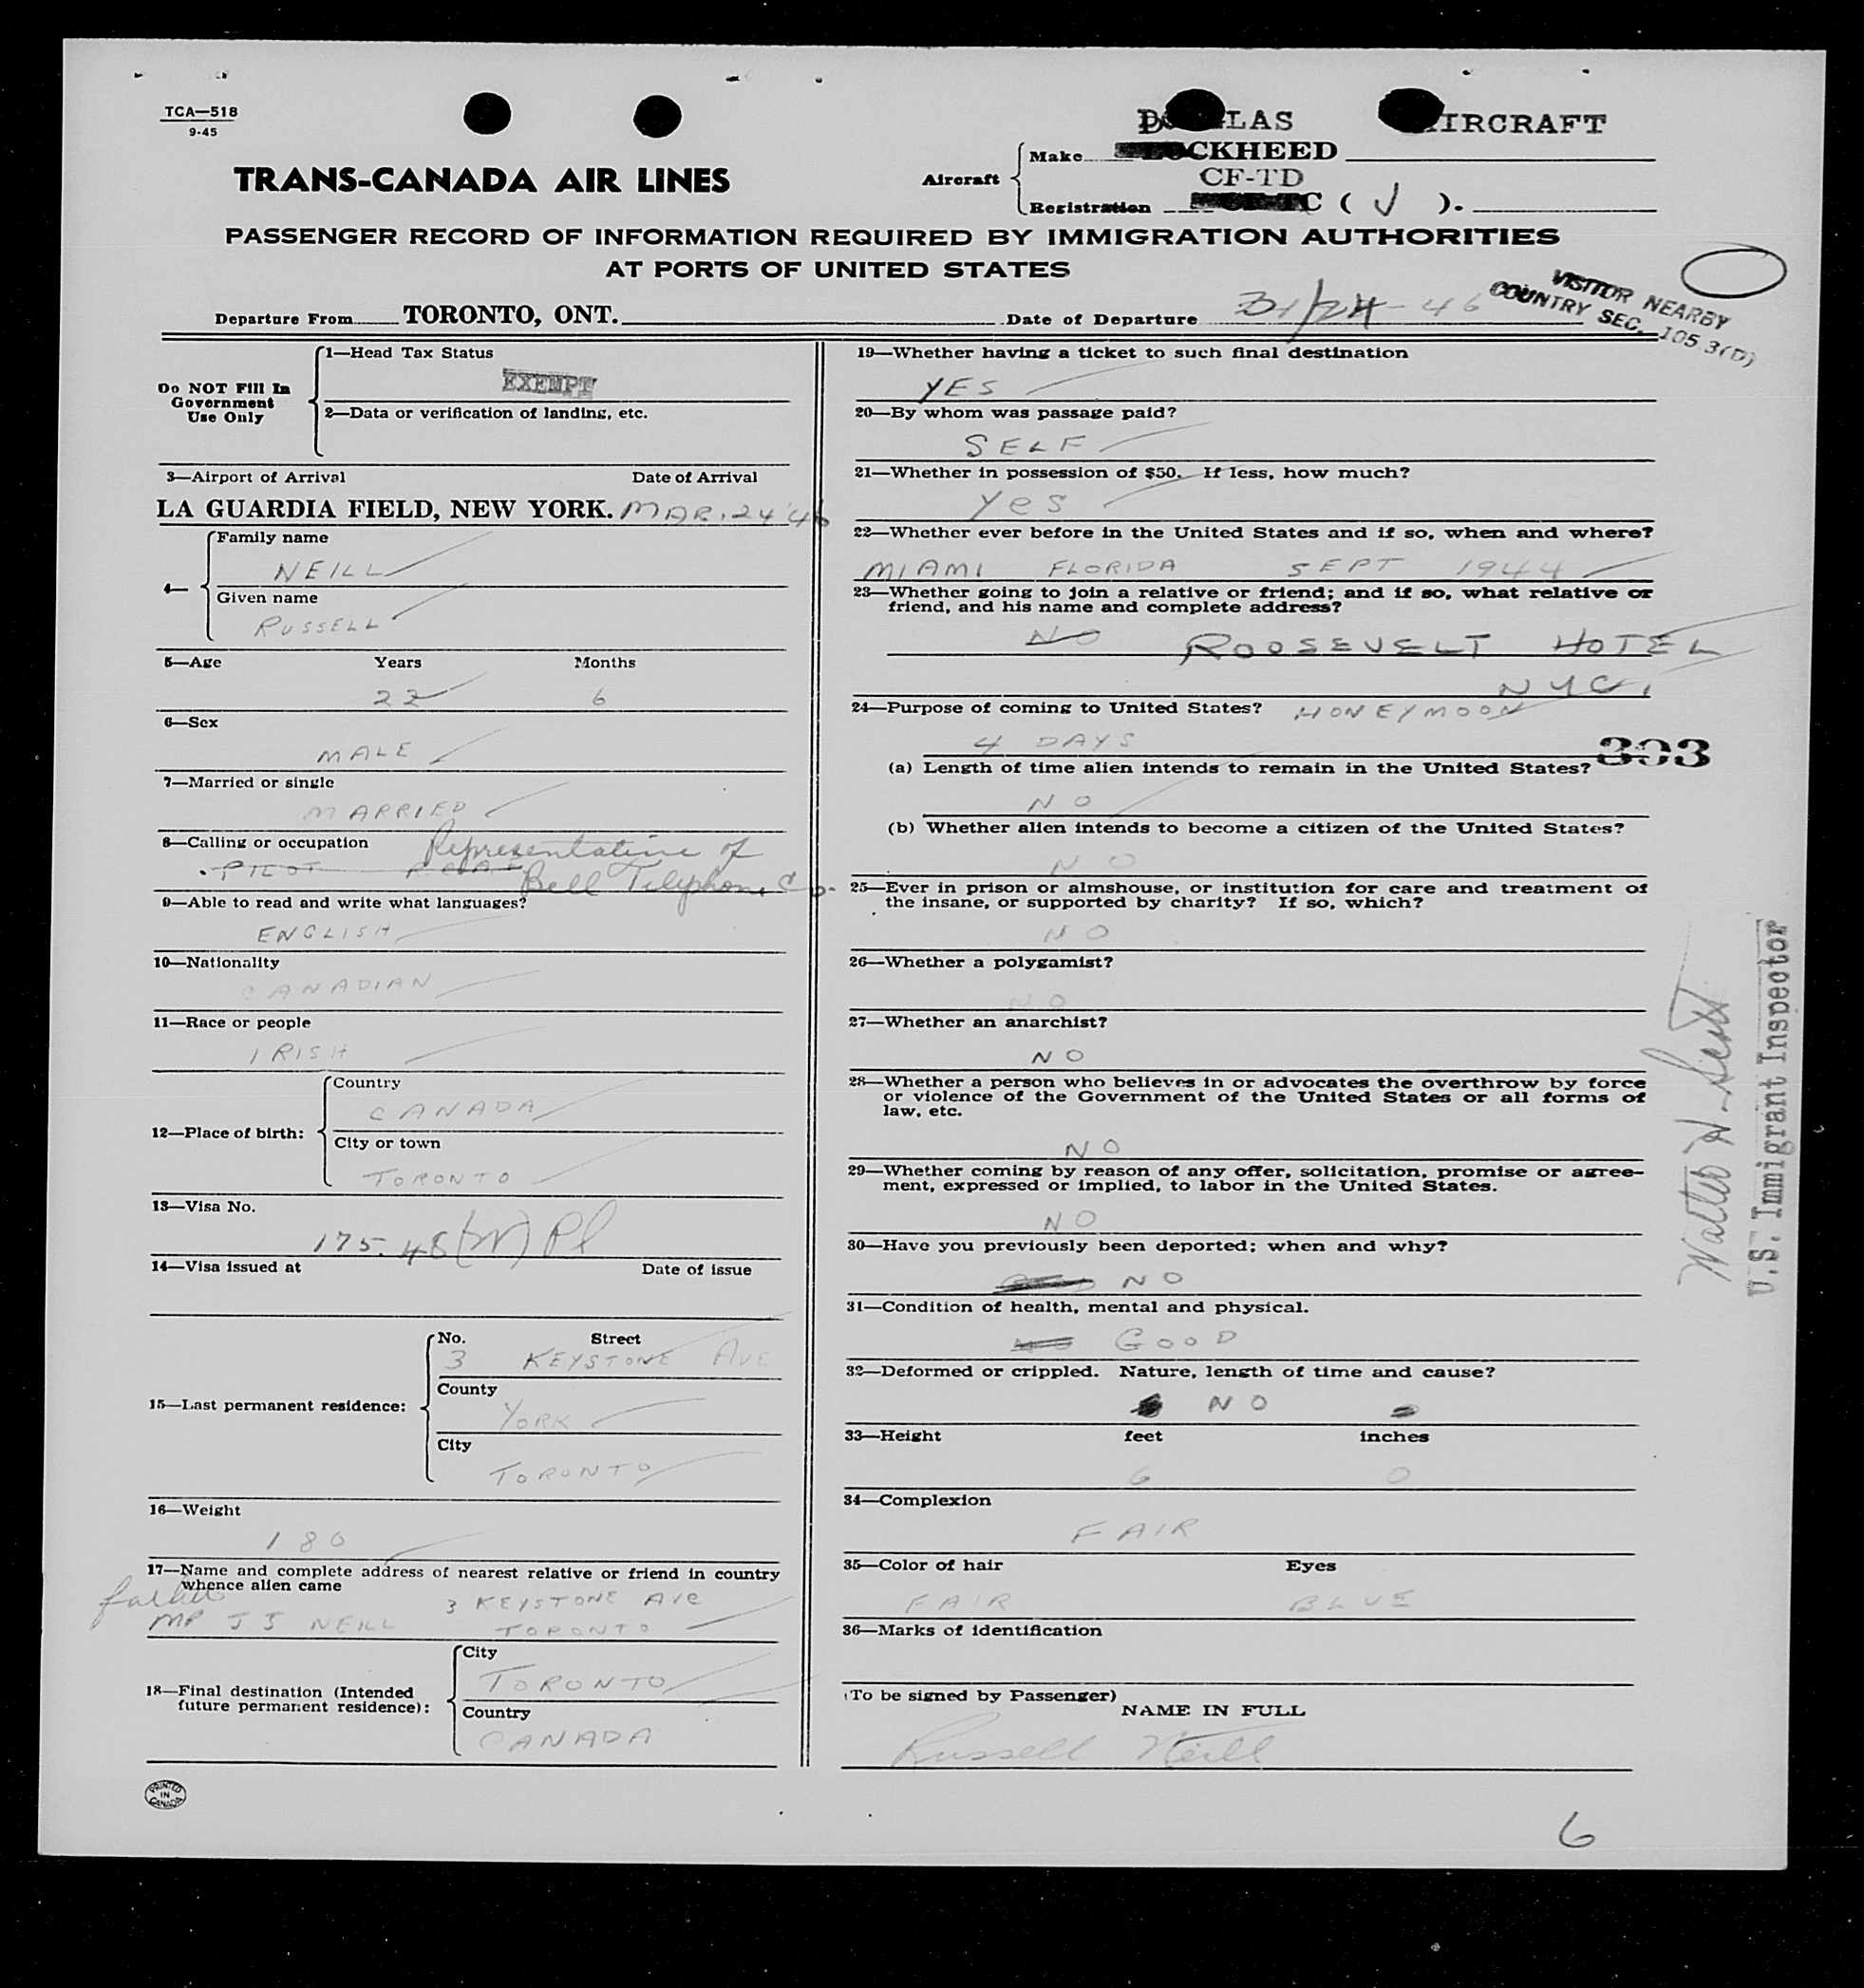 TCA—518
9-45
DOUGLAS AIRCRAFT
TRANS-CANADA AIR LINES
Aircraft
Make LOCKHEED
CF-TD
Registration C ( J ).
PASSENGER RECORD OF INFORMATION REQUIRED BY IMMIGRATION AUTHORITIES
AT PORTS OF UNITED STATES
VISITOR NEARBY
COUNTRY SEC. 105.3(D)
Departure From TORONTO, ONT.
Date of Departure 3/24-46
Do NOT Fill In
Government
Use Only
1—Head Tax Status
EXEMPT
2—Data or verification of landing, etc.
3—Airport of Arrival Date of Arrival
LA GUARDIA FIELD, NEW YORK. MAR. 24 '46
4—
Family name
NEILL
Given name
RUSSELL
5—Age Years Months
22 6
6—Sex
MALE
7—Married or single
MARRIED
8—Calling or occupation Representative of
PILOT Bell Telephone Co.
9—Able to read and write what languages?
ENGLISH
10—Nationality
CANADIAN
11—Race or people
IRISH
12—Place of birth:
Country
CANADA
City or town
TORONTO
13—Visa No.
175.48
14—Visa issued at Date of issue
15—Last permanent residence:
No. Street
3 KEYSTONE AVE
County
YORK
City
TORONTO
16—Weight
180
17—Name and complete address of nearest relative or friend in country
whence alien came
father 3 KEYSTONE AVE
MR J J NEILL TORONTO
18—Final destination (Intended
future permanent residence):
City
TORONTO
Country
CANADA
PRINTED
IN
CANADA
19—Whether having a ticket to such final destination
YES
20—By whom was passage paid?
SELF
21—Whether in possession of $50. If less, how much?
Yes
22—Whether ever before in the United States and if so, when and where?
MIAMI FLORIDA SEPT 1944
23—Whether going to join a relative or friend; and if so, what relative or
friend, and his name and complete address?
NO ROOSEVELT HOTEL
NYC.
24—Purpose of coming to United States? HONEYMOON
4 DAYS
393
(a) Length of time alien intends to remain in the United States?
NO
(b) Whether alien intends to become a citizen of the United States?
NO
25—Ever in prison or almshouse, or institution for care and treatment of
the insane, or supported by charity? If so, which?
NO
26—Whether a polygamist?
NO
27—Whether an anarchist?
NO
28—Whether a person who believes in or advocates the overthrow by force
or violence of the Government of the United States or all forms of
law, etc.
NO
29—Whether coming by reason of any offer, solicitation, promise or agree-
ment, expressed or implied, to labor in the United States.
NO
30—Have you previously been deported; when and why?
NO
31—Condition of health, mental and physical.
GOOD
32—Deformed or crippled. Nature, length of time and cause?
NO
33—Height feet inches
6 0
34—Complexion
FAIR
35—Color of hair Eyes
FAIR BLUE
36—Marks of identification
(To be signed by Passenger)
NAME IN FULL
Russell Neill
Walter H. Scott
U.S. Immigrant Inspector
6